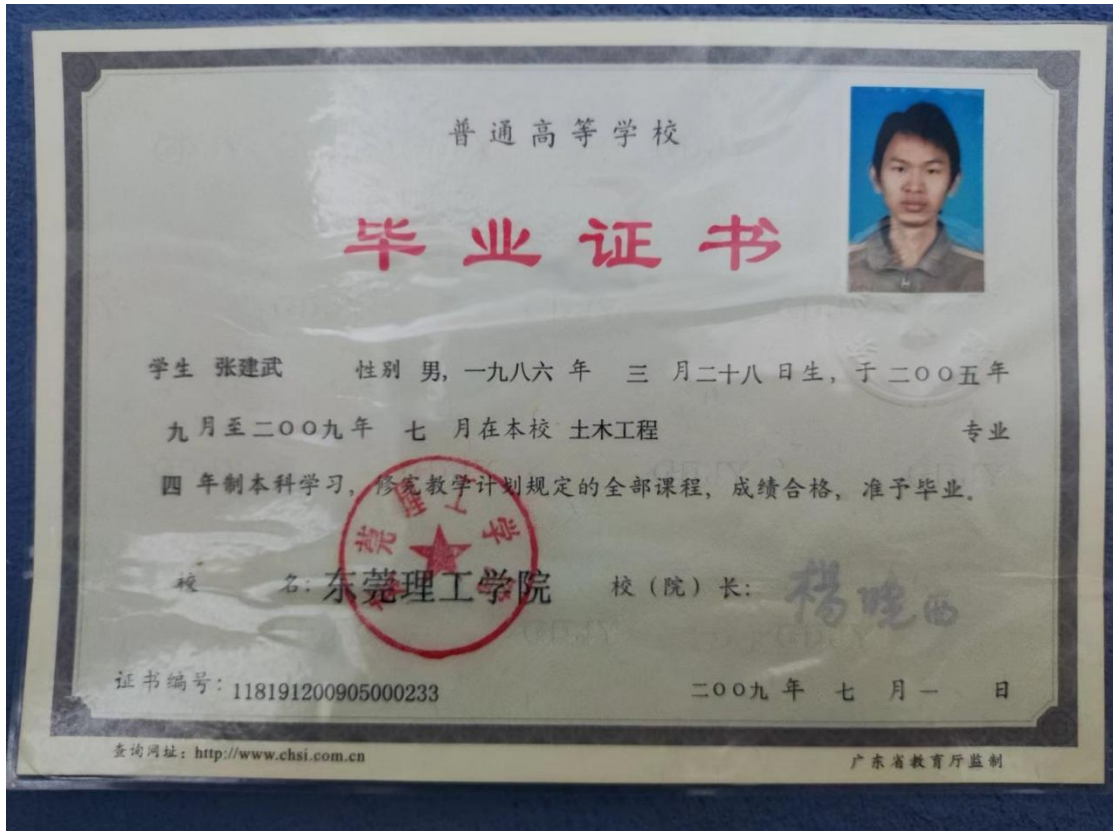 普通高等学校
毕业证书
学生 张建武 性别 男, 一九八六 年 三 月二十八 日生, 于 二〇〇五 年
九 月至二〇〇九 年 七 月在本校 土木工程 专业
四 年制本科学习, 修完教学计划规定的全部课程, 成绩合格, 准予毕业.
校 名: 东莞理工学院 校 (院) 长: 杨晓西
东莞理工学院
证书编号: 118191200905000233 二〇〇九 年 七 月 一 日
查询网址: http://www.chsi.com.cn 广东省教育厅监制